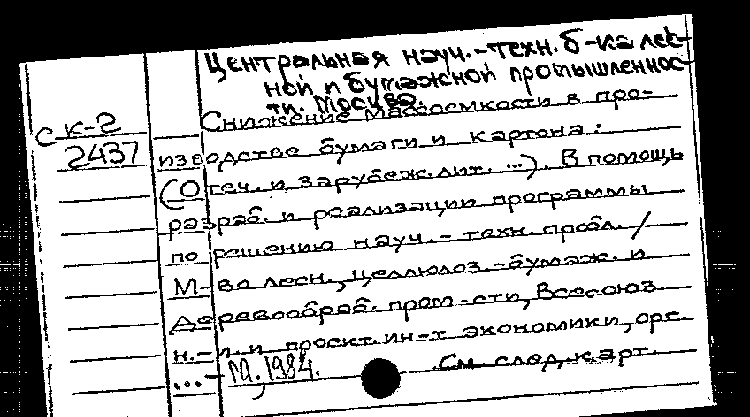 Центральная науч.-техн. б-ка лес-
ной и бумажной промышленнос-
ти. Москва.
СК-2
2437
Снижение массоемкости в про-
изводстве бумаги и картона:
(Отеч. и зарубеж. лит. ...). В помощь
разраб. и реализации программы
по решению науч.-техн. пробл. /
М-во лесн., целлюлоз.-бумаж. и
деревообраб. пром-сти, Всесоюз.
н.-и. и проект. ин-т экономики, орг.
... - М., 1984.
См. след. карт.